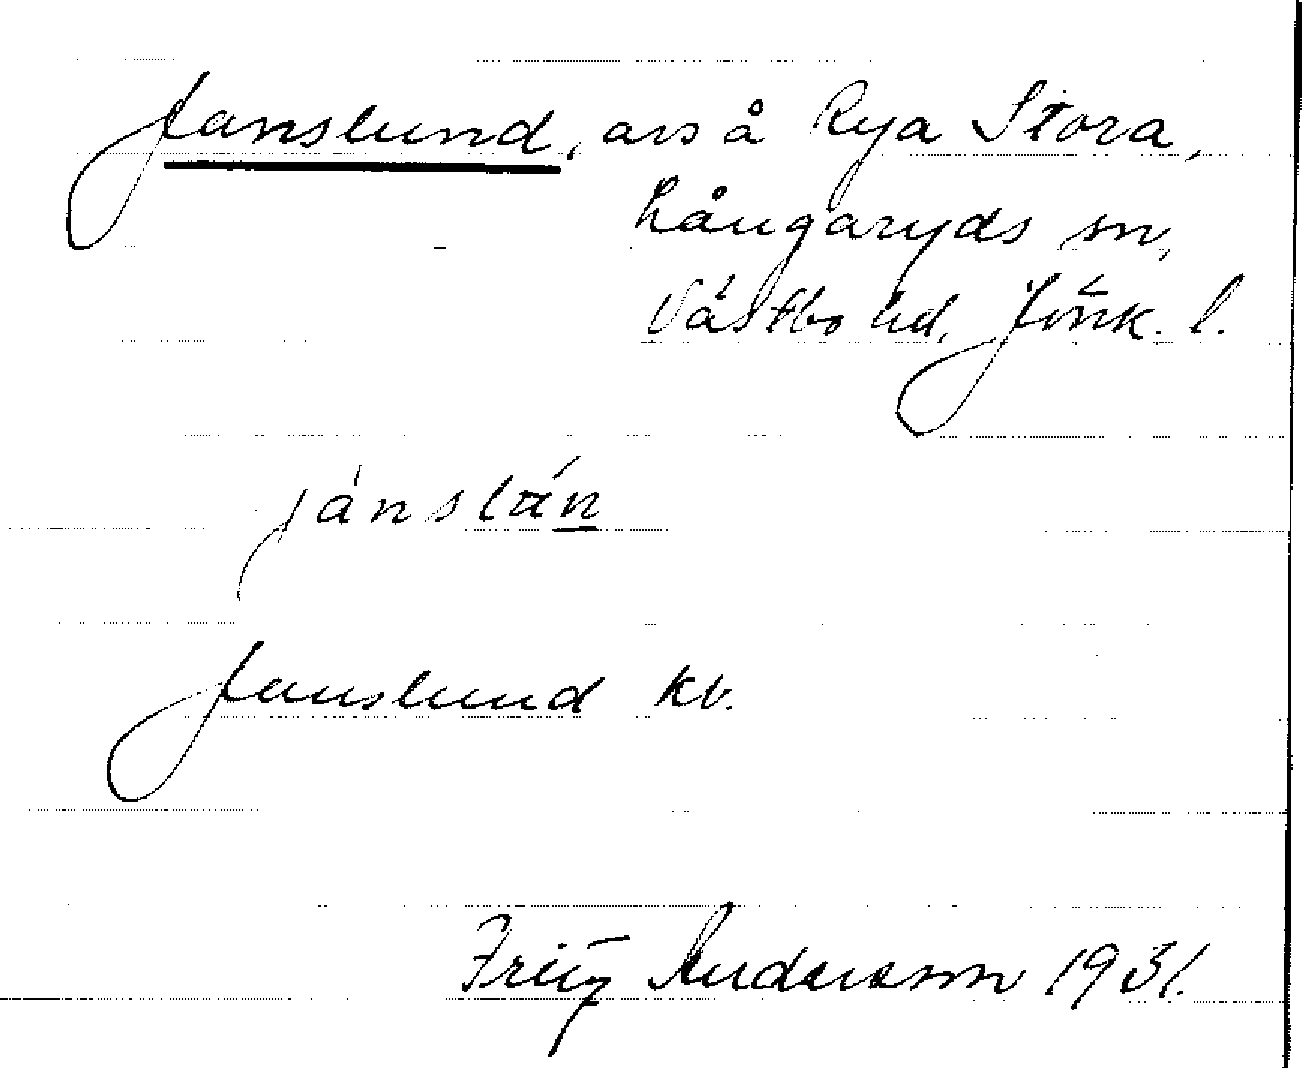 Janslund, avs å Rya Stora,
Långaryds sn,
Västbo hd, Jönk. l.
jánslán
Janslund kb.
Fritz Andersson 1931.